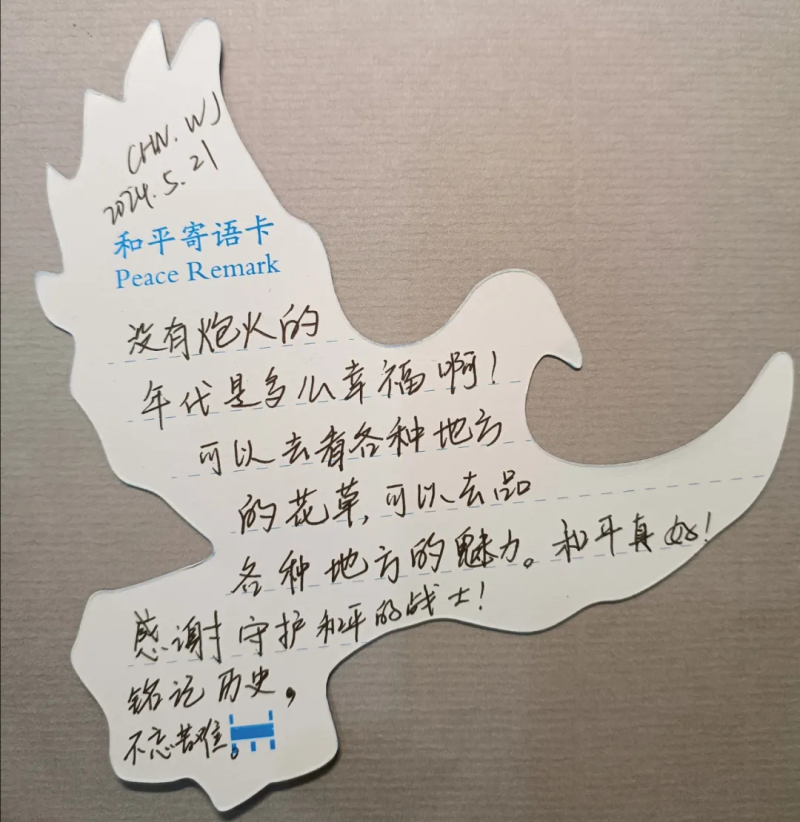 CHN. WJ
2024.5.21
和平寄语卡
Peace Remark
没有炮火的
年代是多么幸福啊！
可以去看各种地方
的花草,可以去品
各种地方的魅力。和平真好！
感谢守护和平的战士！
铭记历史，
不忘苦难。